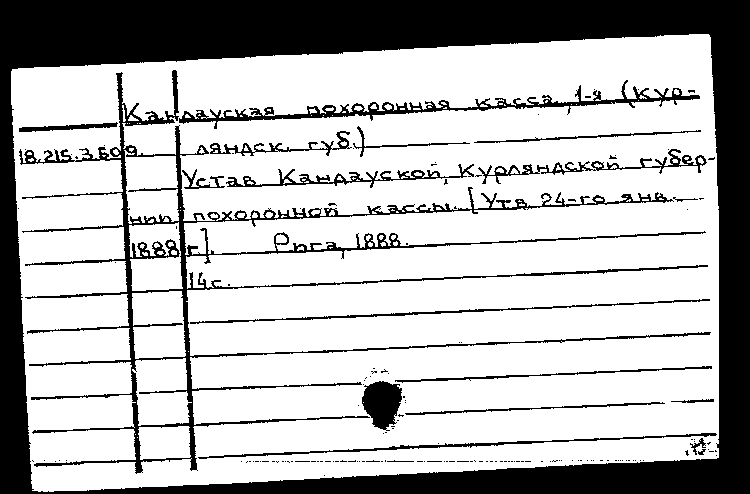 Кандауская похоронная касса, 1-я (Кур-
18.215.3.509. ляндск. губ.)
Устав Кандауской, Курляндской губер-
нии похоронной кассы. [Утв. 24-го янв.
1888 г.]. Рига, 1888.
14 с.